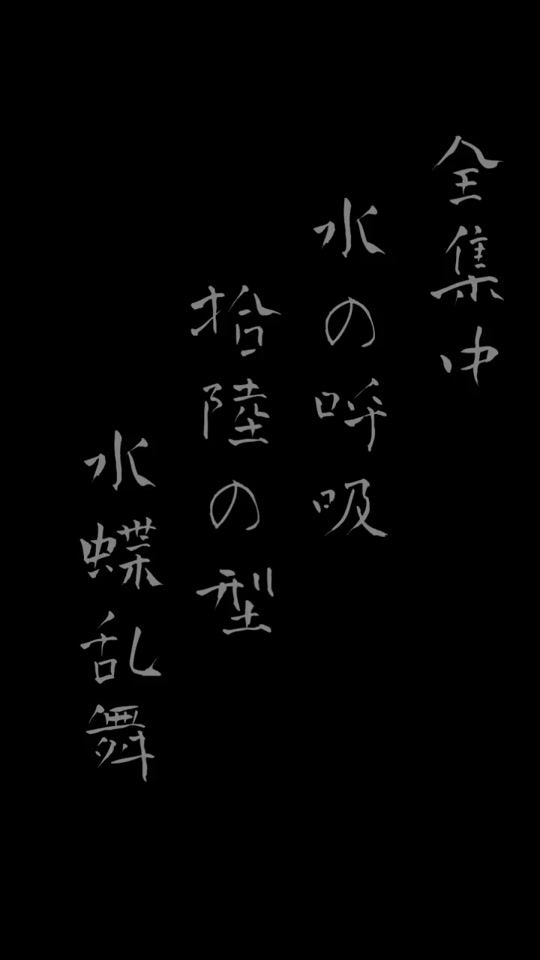 全集中
水の呼吸
拾陸の型
水蝶乱舞